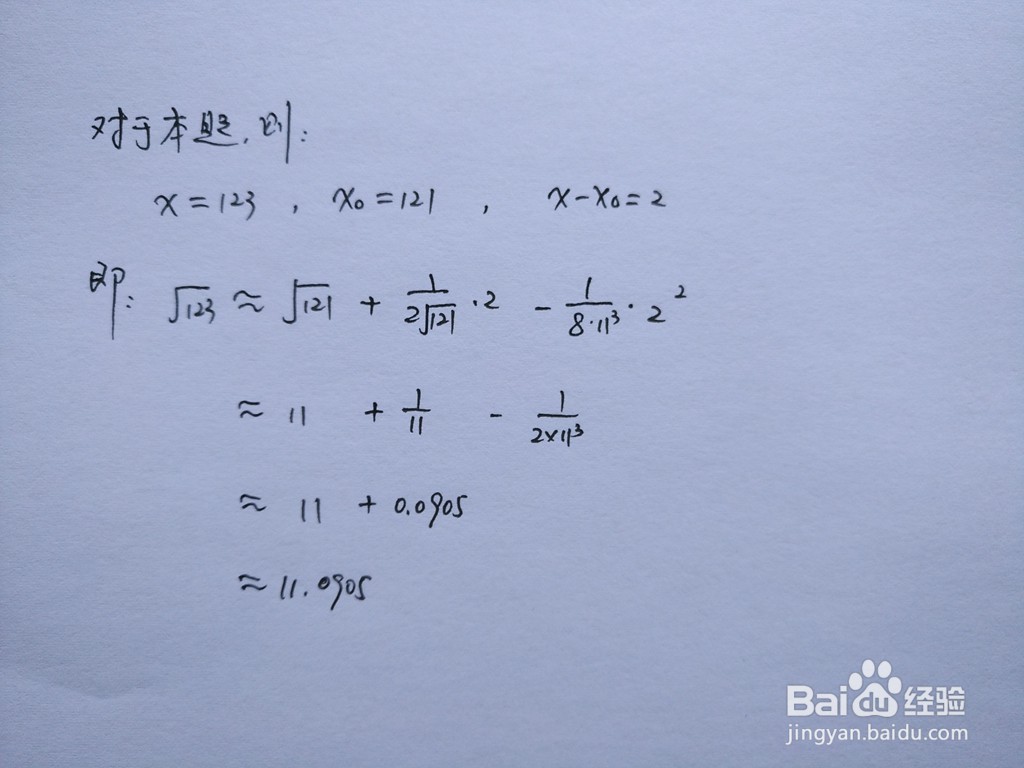 对于本题,则:
x=123 , x₀=121 , x-x₀=2
即: √123 ≈ √121 + 1/(2√121) ·2 - 1/(8·11³) ·2²
≈ 11 + 1/11 - 1/(2×11³)
≈ 11 + 0.0905
≈ 11.0905
Bai 经验
jingyan.baidu.com